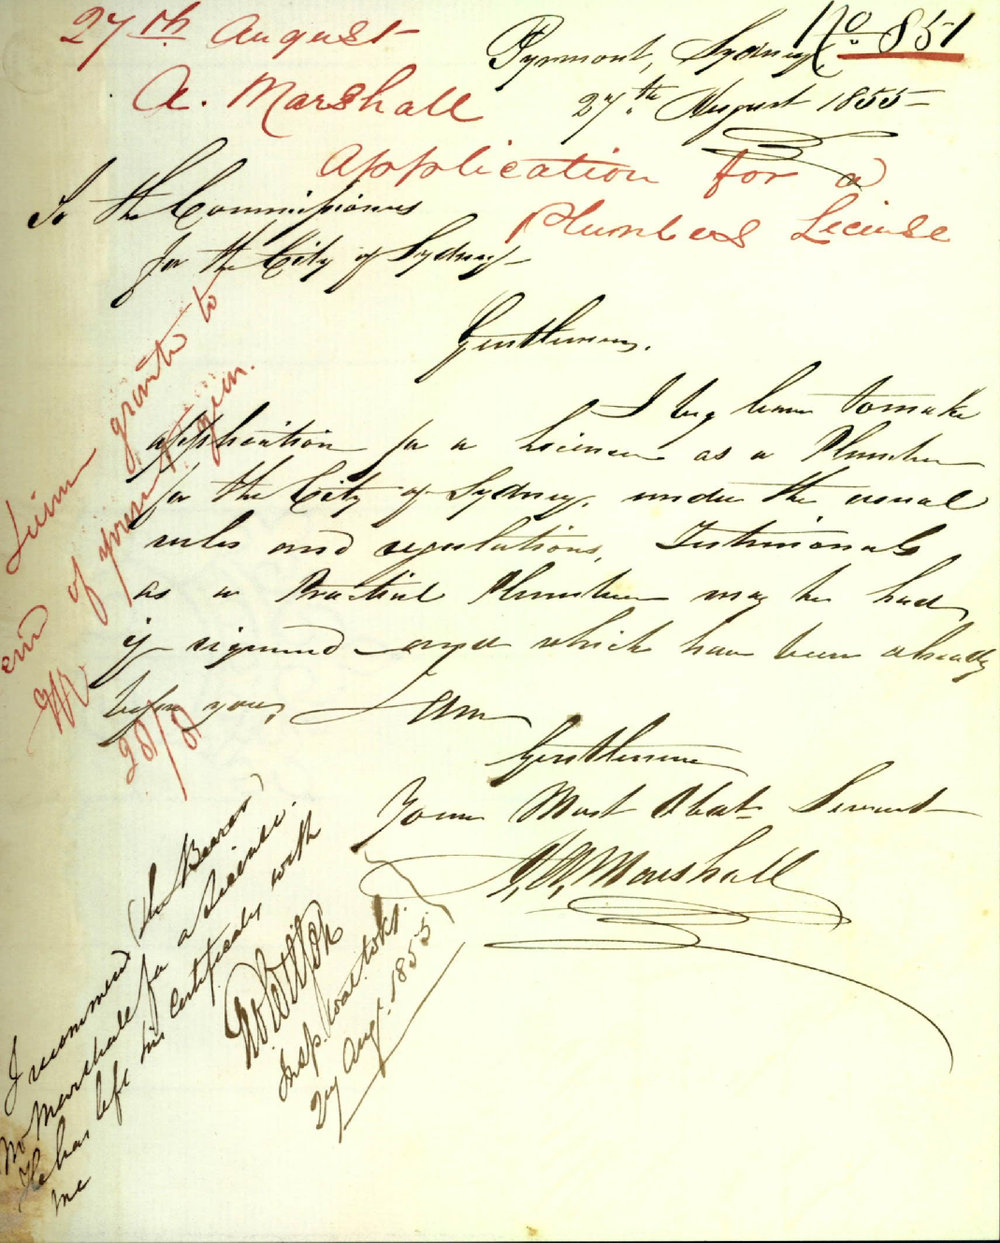 27th August
No. 851
A. Marshall
Application for a
Plumbers License
Pyrmont, Sydney,
27th August 1855
To the Commissioners
for the City of Sydney
Gentlemen,
I beg leave to make
application for a License as a Plumber
for the City of Sydney, under the usual
rules and regulations, Testimonials
as a Practical Plumber may be had
if required and which have been already
before you, I am
Gentlemen
Your Most Obdt Servant
A. Marshall
granted to
end of year
28/8
I recommend the Bearer
Mr Marshall for a License
He has left his certificates with
me
Insp. Water Wks.
27 Aug. 1855